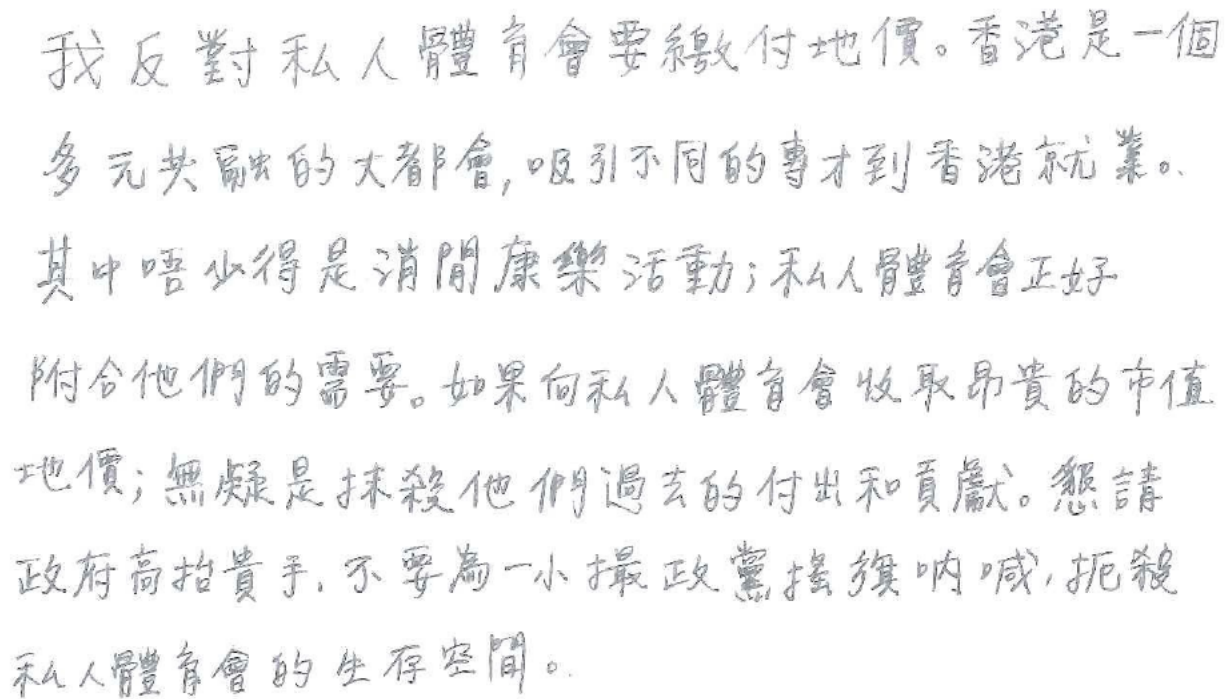 我反對私人體育會要繳付地價。香港是一個
多元共融的大都會,吸引不同的專才到香港就業。
其中唔少得是消閒康樂活動;私人體育會正好
附合他們的需要。如果向私人體育會收取昂貴的市值
地價;無疑是抹殺他們過去的付出和貢獻。懇請
政府高抬貴手,不要為一小撮政黨搖旗吶喊,扼殺
私人體育會的生存空間。